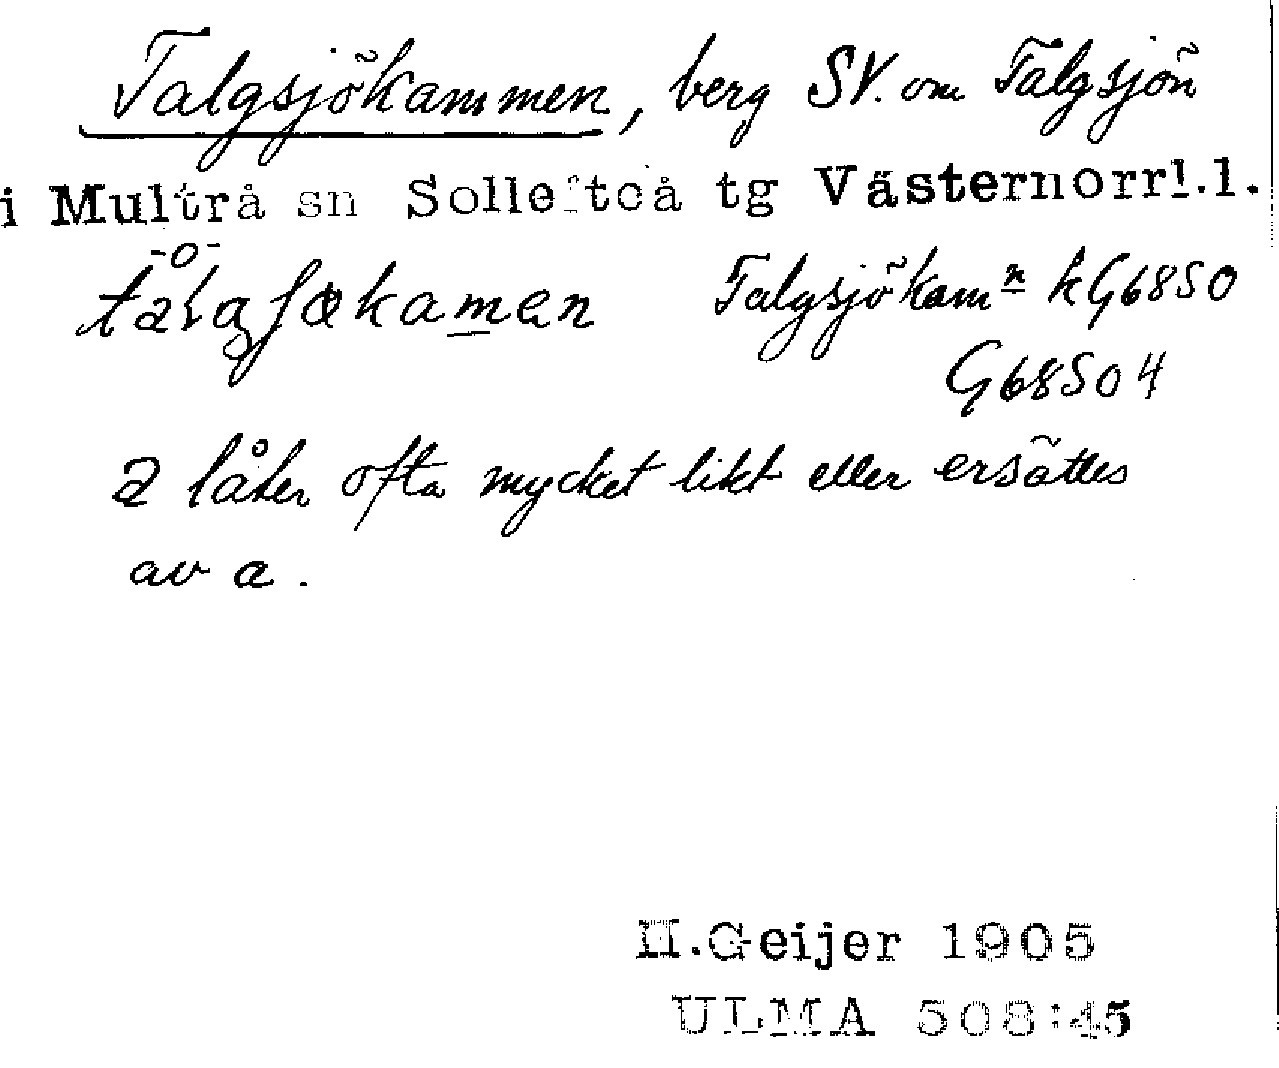 Talgsjökammen, berg SV. om Talgsjön
i Multrå sn Sollefteå tg Västernorrl.l.
-o-
Talgsjökamn kG6850
G68504
a låter ofta mycket likt eller ersättes
av a.
H.Geijer 1905
ULMA 508:45